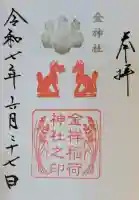 奉拝
金神社
金祥稲荷
神社之印
令和七年六月二十七日